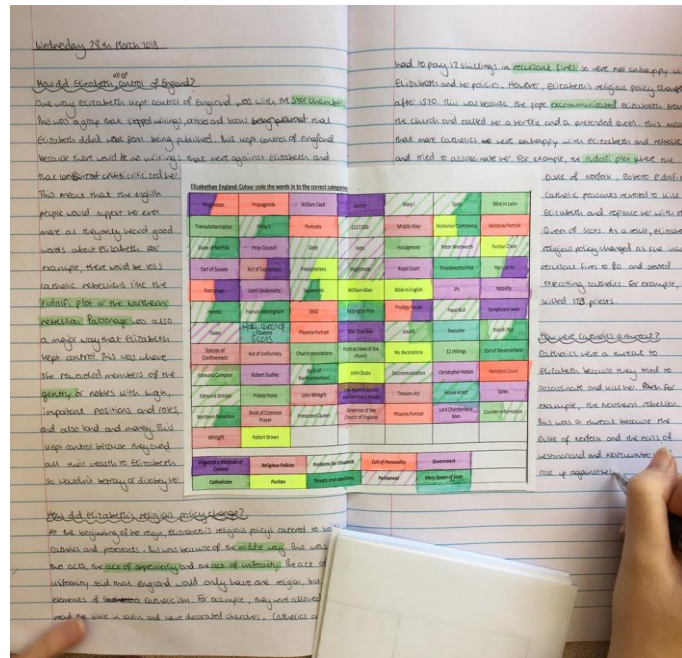 Wednesday 28th March 2018
How did Elizabeth keep control of England?
One way Elizabeth kept control of England was with the star chamber.
This was a group that stopped writings, articles and books that
Elizabeth didn't want from being published. This kept control of England
because there would be no writings that were against Elizabeth and
that criticized her.
This means that the english
people would support her even
more as they only heard good
words about Elizabeth. For
example, there would be less
catholic rebellions like the
rudolfi plot or the Northern
rebellion. Patronage was also
a major way that Elizabeth
kept control. This was where
she rewarded members of the
gentry or nobles with high,
important positions and roles,
and also land and money. This
kept control because they owed
all their wealth to Elizabeth
so wouldn't betray or disobey her.
How did Elizabeth's religious policy change?
At the beginning of her reign, Elizabeth's religious policys catered to both
Catholics and protestants. This was because of the middle way. This was
two acts, the act of supremacy and the act of uniformity. The act of
uniformity said that England would only have one religion, but
elements of catholicism. For example, they were allowed
read the bible in latin and have decorated churches. Catholics
had to pay 12 shillings in recusant fines so were not unhappy with
Elizabeth and her policies. However, Elizabeth's religious policy changed
after 1570. This was because the pope excommunicated Elizabeth from
the church and called her a heretic and a pretended queen. This meant
that more catholics were unhappy with Elizabeth and rebelled
and tried to assassinate her. For example, the rudolfi plot where the
Duke of Norfolk, Roberto ridolfi
Catholic peasants revolted to kill
Elizabeth and replace her with
Queen of Scots. As a result, Elizabeth
religious policy changed as she
recusious fines to £20 and started
executing catholics. For example,
killed 128 priests.
How were Catholics a threat?
Catholics were a threat to
Elizabeth because they tried to
assassinate and kill her. For
example, the Northern rebellion.
This was a threat because the
Duke of Norfolk and the earls of
westmorland and Northumber
rose up against
Elizabethan England: Colour code the words in to the correct categories
Progresses Propaganda William Cecil Gentry Mary I Spain Bible in Latin
Transubstantiation Philip II Portraits Middle Way Vestiarian Controversy Rainbow Portrait
Duke of Norfolk Privy Council Indulgences Peter Wentworth Puritan Choir
Earl of Sussex Act of Supremacy Presbyterians Illegitimate Royal Court Throckmorton Plot
Patronage Lord Lieutenants Separatists William Allen Bible in English JPs Nobility
Heretic Francis Walsingham Babington Plot Prodigy House Papal Bull Sumptuary Laws
Taxes Mary, Queen of Scots Phoenix Portrait Star Chamber Jesuits Execution Ridolfi Plot
Statute of Confinement Act of Uniformity Church decorations Pope as head of the church No decorations 12 shillings Earl of Westmorland
Edmund Campion Robert Dudley Earl of Northumberland John Stubs Excommunication Christopher Hatton Hampton Court
Edmund Grindal Priests Holes John Whitgift Treason Act House Arrest Spies
Northern Rebellion Book of Common Prayer Pretended Queen Governor of the Church of England Phoenix Portrait Lord Chamberlains Men Counter-reformation
Whitgift Robert Brown
Elizabeth's Methods of Control Religious Policies Problems for Elizabeth Cult of Personality Government
Catholicism Puritan Threats and rebellions Parliament Mary Queen of Scots